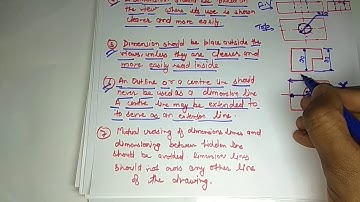 the view where its use is shown
clearer and more easily.
⑤ Dimension should be place outside the
views unless they are clearer and
more easily read inside
⑥ An Outline or a centre line should
never be used as a dimension line
A centre line may be extended to
to serve as an extension line.
⑦ Mutual crossing of dimensions lines and
dimensioning between hidden line
should be avoided. Dimension lines
should not cross any other line
of the drawing.
F.V
Top